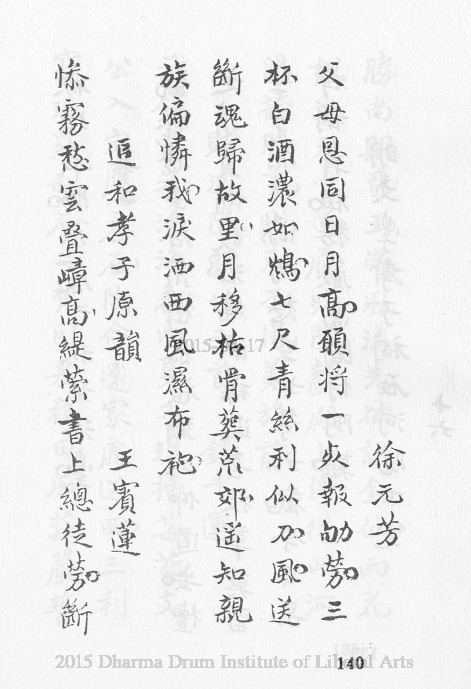 徐元芳
父母恩同日月高願将一死報劬勞三
杯白酒濃如鴆七尺青絲利似刀風送
斷魂歸故里月移枯骨葬荒郊遥知親
族偏憐我淚洒西風濕布袍
追和孝子原韻　王賓蓮
惨霧愁雲疊嶂高緹縈書上總徒勞斷
140
2015 Dharma Drum Institute of Liberal Arts